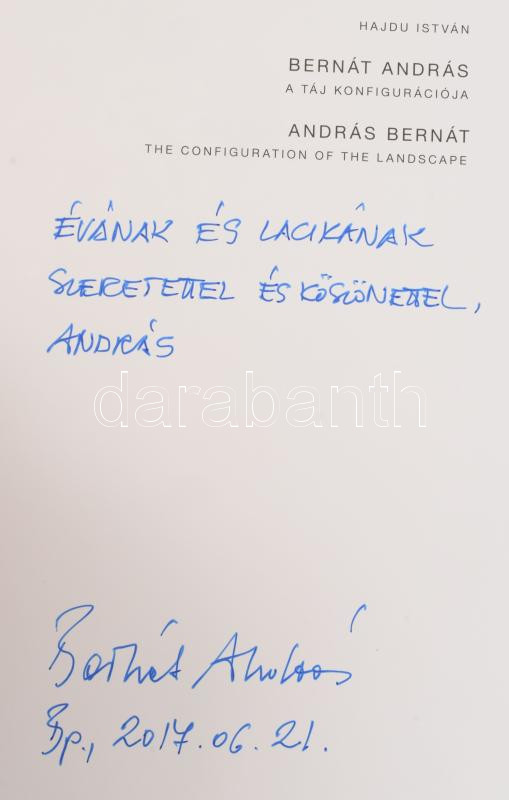 HAJDU ISTVÁN
BERNÁT ANDRÁS
A TÁJ KONFIGURÁCIÓJA
ANDRÁS BERNÁT
THE CONFIGURATION OF THE LANDSCAPE
ÉVÁNAK ÉS LACIKÁNAK
SZERETETTEL ÉS KÖSZÖNETTEL,
ANDRÁS
darabanth
Bernát András
Bp., 2017.06.21.